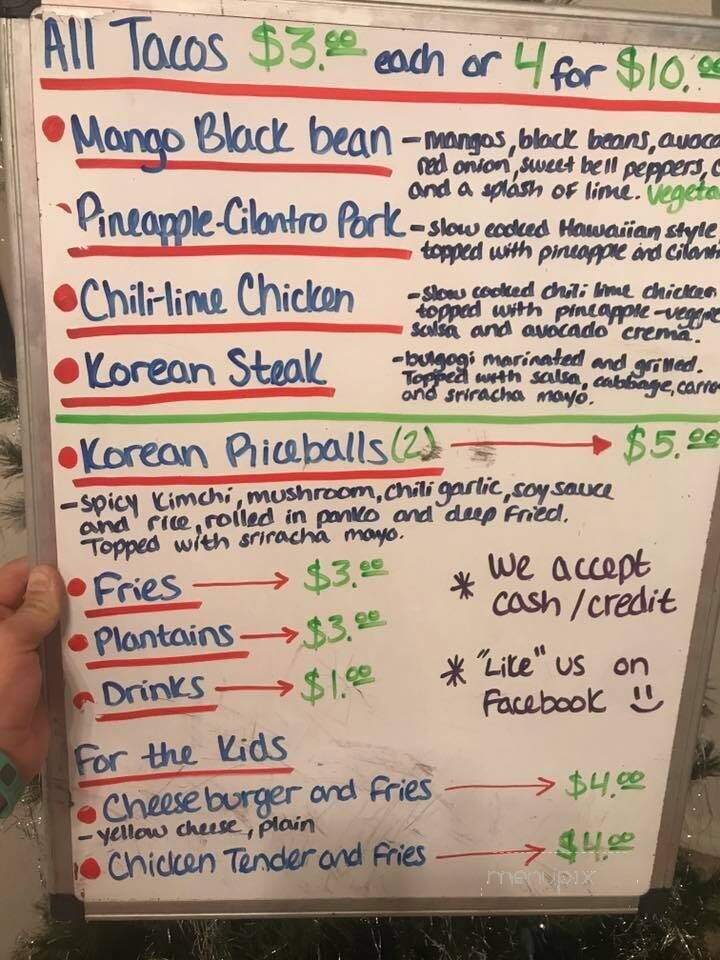 All Tacos $3.00 each or 4 for $10.00
Mango Black bean - mangos, black beans,
red onion, sweet bell peppers,
and a splash of lime.
Pineapple-Cilantro Pork - slow cooked Hawaiian style
topped with pineapple and
Chili-lime Chicken - slow cooked chili lime chicken
topped with pineapple-
salsa and avocado crema.
Korean Steak - bulgogi marinated and grilled.
Topped with salsa, cabbage,
and sriracha mayo.
Korean Riceballs (2) $5.00
- spicy kimchi, mushroom, chili garlic, soy sauce
and rice, rolled in panko and deep fried.
Topped with sriracha mayo.
Fries $3.00
Plantains $3.00
Drinks $1.00
* We accept
cash/credit
* "Like" us on
Facebook
For the Kids
Cheeseburger and Fries $4.00
- yellow cheese, plain
Chicken Tender and Fries $4.00
menupix